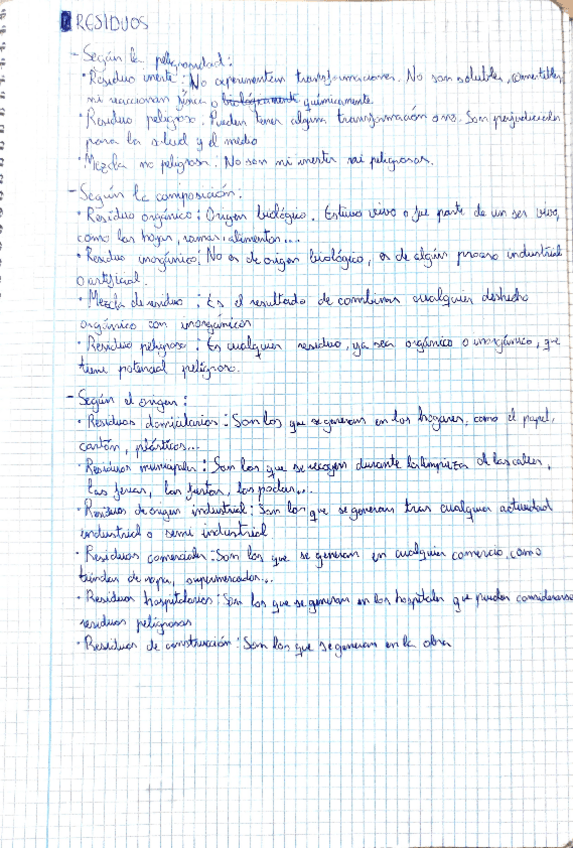 RESIDUOS
- Según la peligrosidad:
· Residuo inerte: No experimentan transformaciones. No son solubles, combustibles,
ni reaccionan física o biológicamente químicamente.
· Residuo peligroso: Pueden tener alguna transformación o no. Son perjudiciales
para la salud y el medio
· Mezcla no peligrosa: No son ni inertes ni peligrosas.
- Según la composición:
· Residuo orgánico: Origen biológico. Estuvo vivo o fue parte de un ser vivo,
como las hojas, ramas, alimentos...
· Residuo inorgánico: No es de origen biológico, es de algún proceso industrial
o artificial.
· Mezcla de residuo: Es el resultado de combinar cualquier deshecho
orgánico con inorgánicos
· Residuo peligroso: Es cualquier residuo, ya sea orgánico o inorgánico, que
tiene potencial peligroso.
- Según el origen:
· Residuos domiciliarios: Son los que se generan en los hogares, como el papel,
cartón, plásticos...
· Residuos municipales: Son los que se recogen durante la limpieza de las calles,
las ferias, las fiestas, las podas...
· Residuos de origen industrial: Son los que se generan tras cualquier actividad
industrial o semi industrial
· Residuos comerciales: Son los que se generan en cualquier comercio, como
tiendas de ropa, supermercados...
· Residuos hospitalarios: Son los que se generan en los hospitales que pueden considerarse
residuos peligrosos
· Residuos de construcción: Son los que se generan en la obra